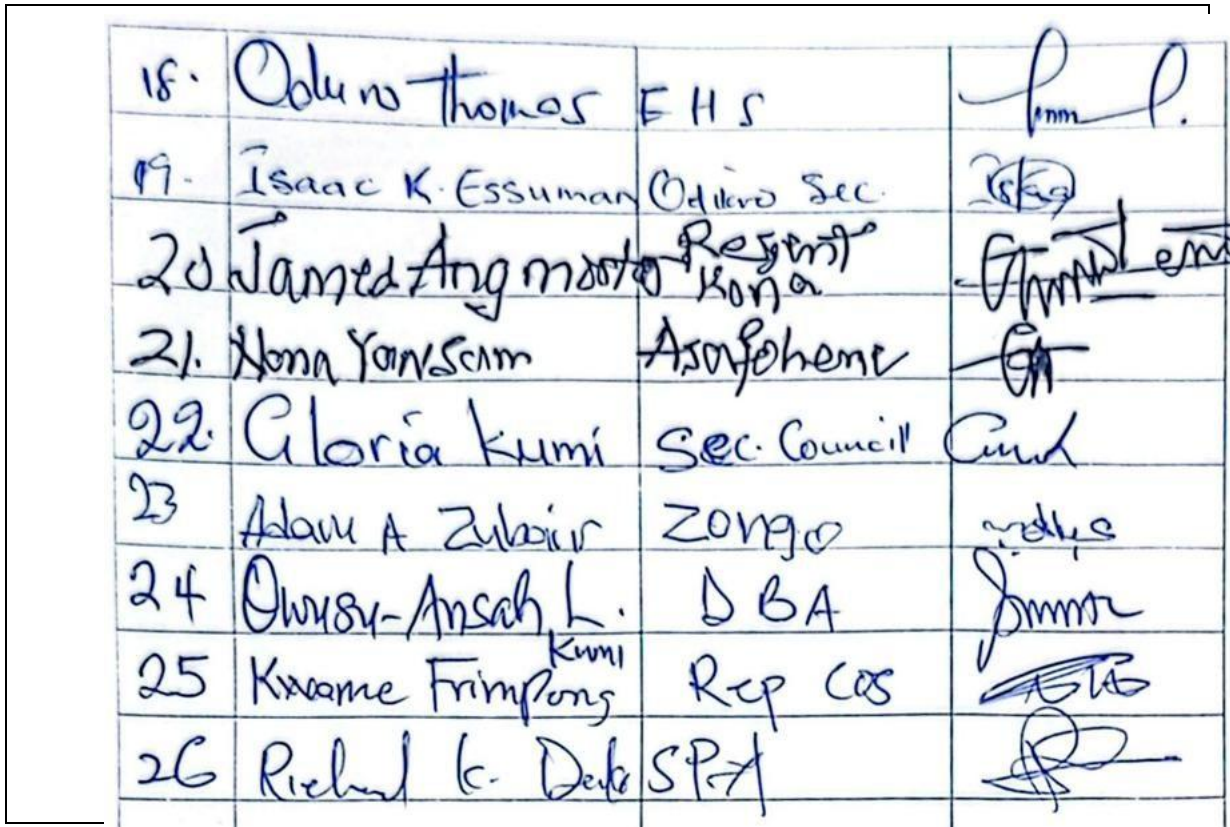 18. Oduro Thomas EHS
19. Isaac K. Essuman Odikro Sec.
20 James Ang Regent
Kona
21. Nana Asafohene
22. Gloria Kumi Sec. Council
23 Adam A Zubair Zongo
24 Owusu-Ansah L. DBA
Kumi
25 Kwame Frimpong Rep COS
26 Richard K.